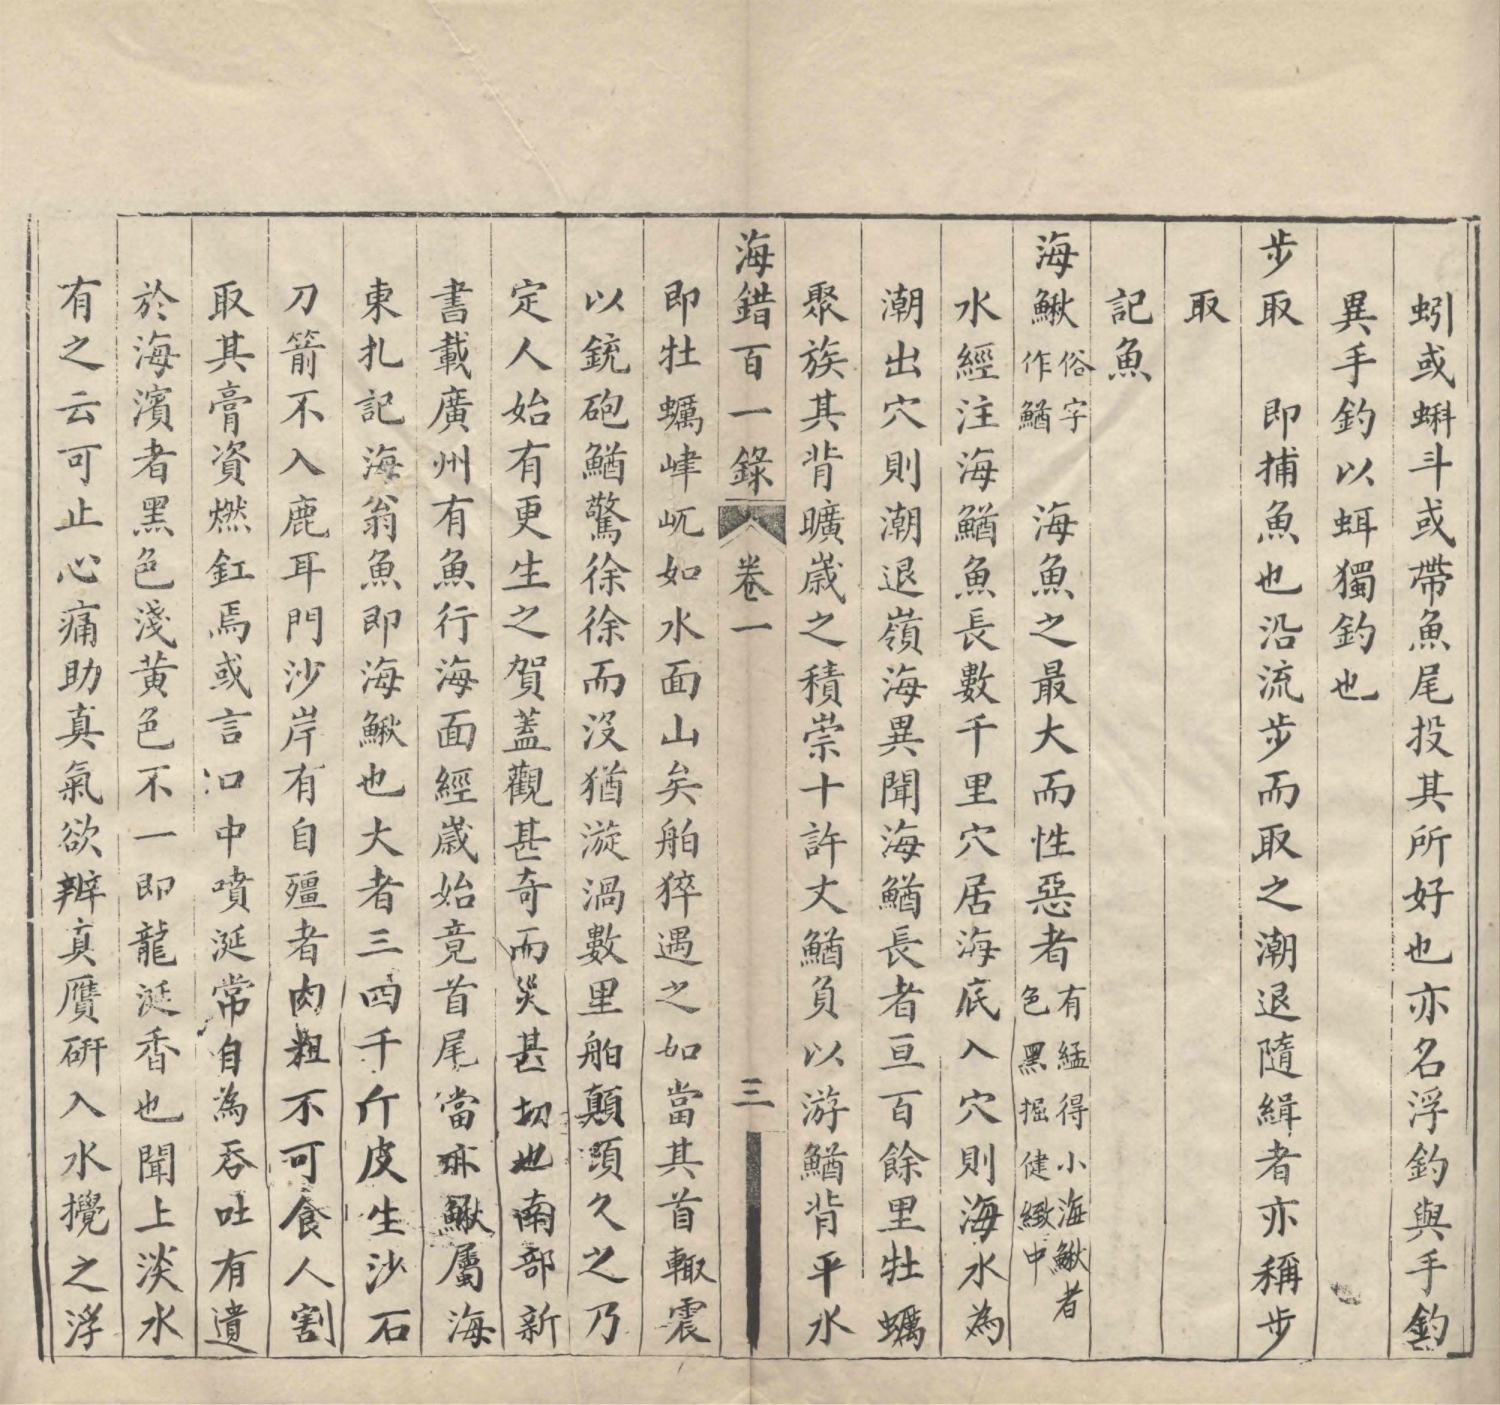 蚓或蝌斗或帶魚尾投其所好也亦名浮釣與手釣
異手釣以蝦獨釣也
步取　即捕魚也沿流步而取之潮退隨緝者亦稱步
取
記魚
海鰍俗字作鰌　海魚之最大而性惡者有艋得小海鰍者色黑掘健緻中
水經注海鰌魚長數千里穴居海底入穴則海水為
潮出穴則潮退嶺海異聞海鰌長者亘百餘里牡蠣
聚族其背曠歲之積崇十許丈鰌負以游鰌背平水
海錯百一錄　卷一　三
即牡蠣峍屼如水面山矣舶猝遇之如當其首輙震
以銃砲鰌驚徐徐而沒猶漩渦數里舶顛頃久之乃
定人始有更生之賀蓋觀甚奇而災甚切也南部新
書載廣州有魚行海面經歲始竟首尾當亦鰍屬海
東扎記海翁魚即海鰍也大者三四千斤皮生沙石
刀箭不入鹿耳門沙岸有自殭者肉粗不可食人割
取其膏資燃釭焉或言口中噴涎常自為吞吐有遺
於海濱者黑色淺黃色不一即龍涎香也聞上淡水
有之云可止心痛助真氣欲辨真贋研入水攪之浮